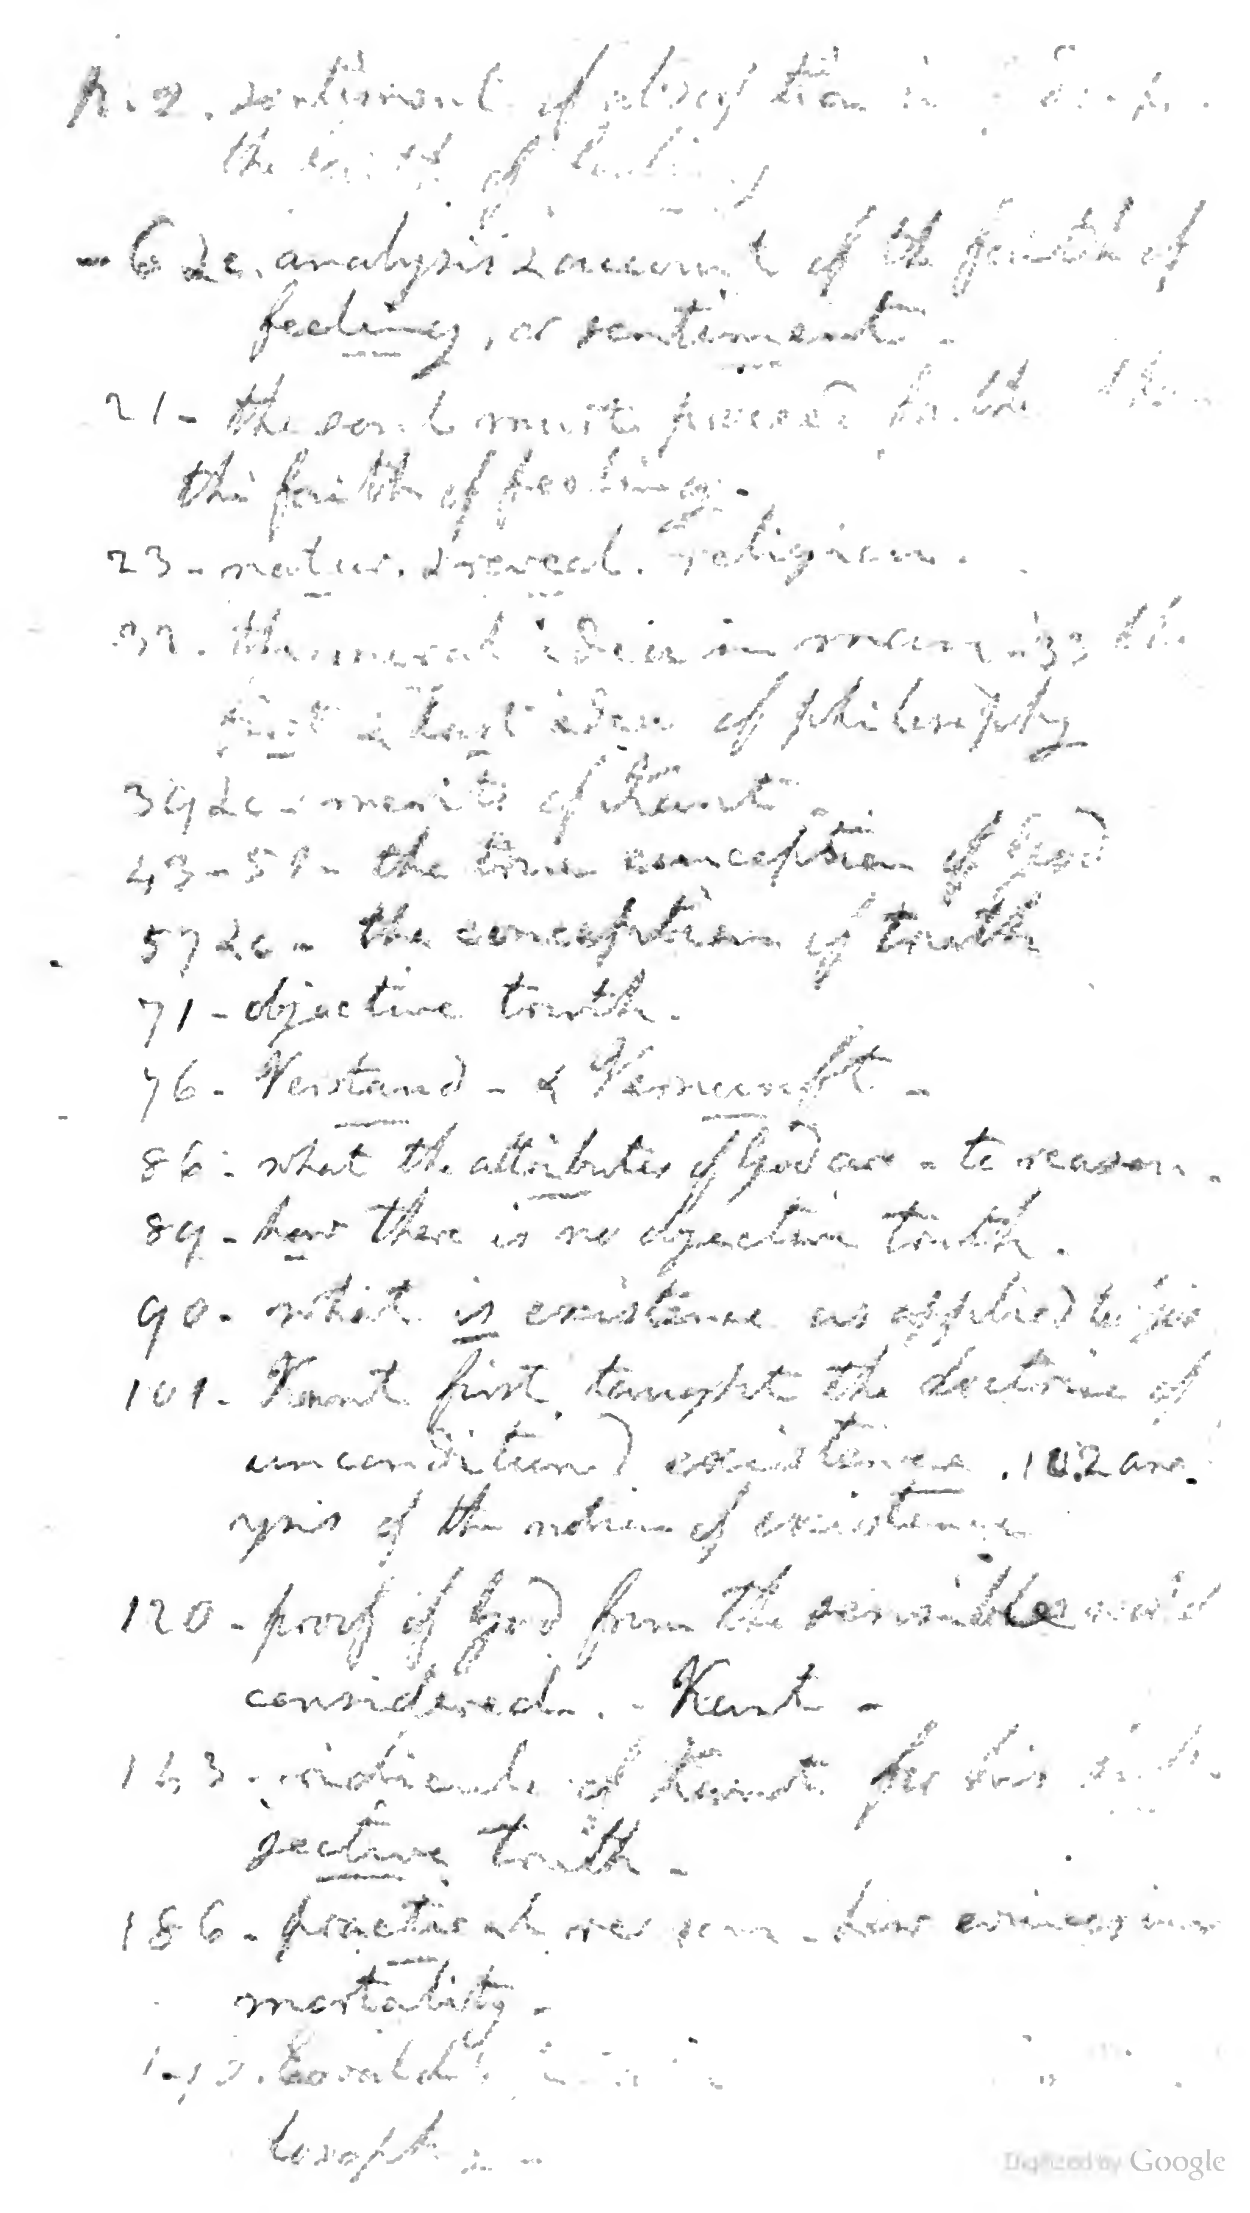 p. 2. sentiment of
the faith of feeling
- 6 &c. analysis & account of the faith of
feeling, or sentiment -
21 - the soul must proceed
this faith of feeling -
23 - natur. & reveal. religion.
32. the moral idea in man - 33 the
first & last idea of philosophy
39 &c - merits of Kant -
43-51 - the true conception of God
57 &c - the conception of truth
71 - objective truth.
76 - Verstand - & Vernunft -
86 - what the attributes of God are - to reason.
89 - how there is no objective truth.
90 - what is existence as applied to
101 - Kant first taught the doctrine of
unconditioned existence. 102 ana
ysis of the notion of existence
120 - proof of God from the sensible world
considered. - Kant -
163 - of Kant for his sub-
jective truth -
186 - practical reason - how evinces im
mortality -
losoph
Digitized by Google